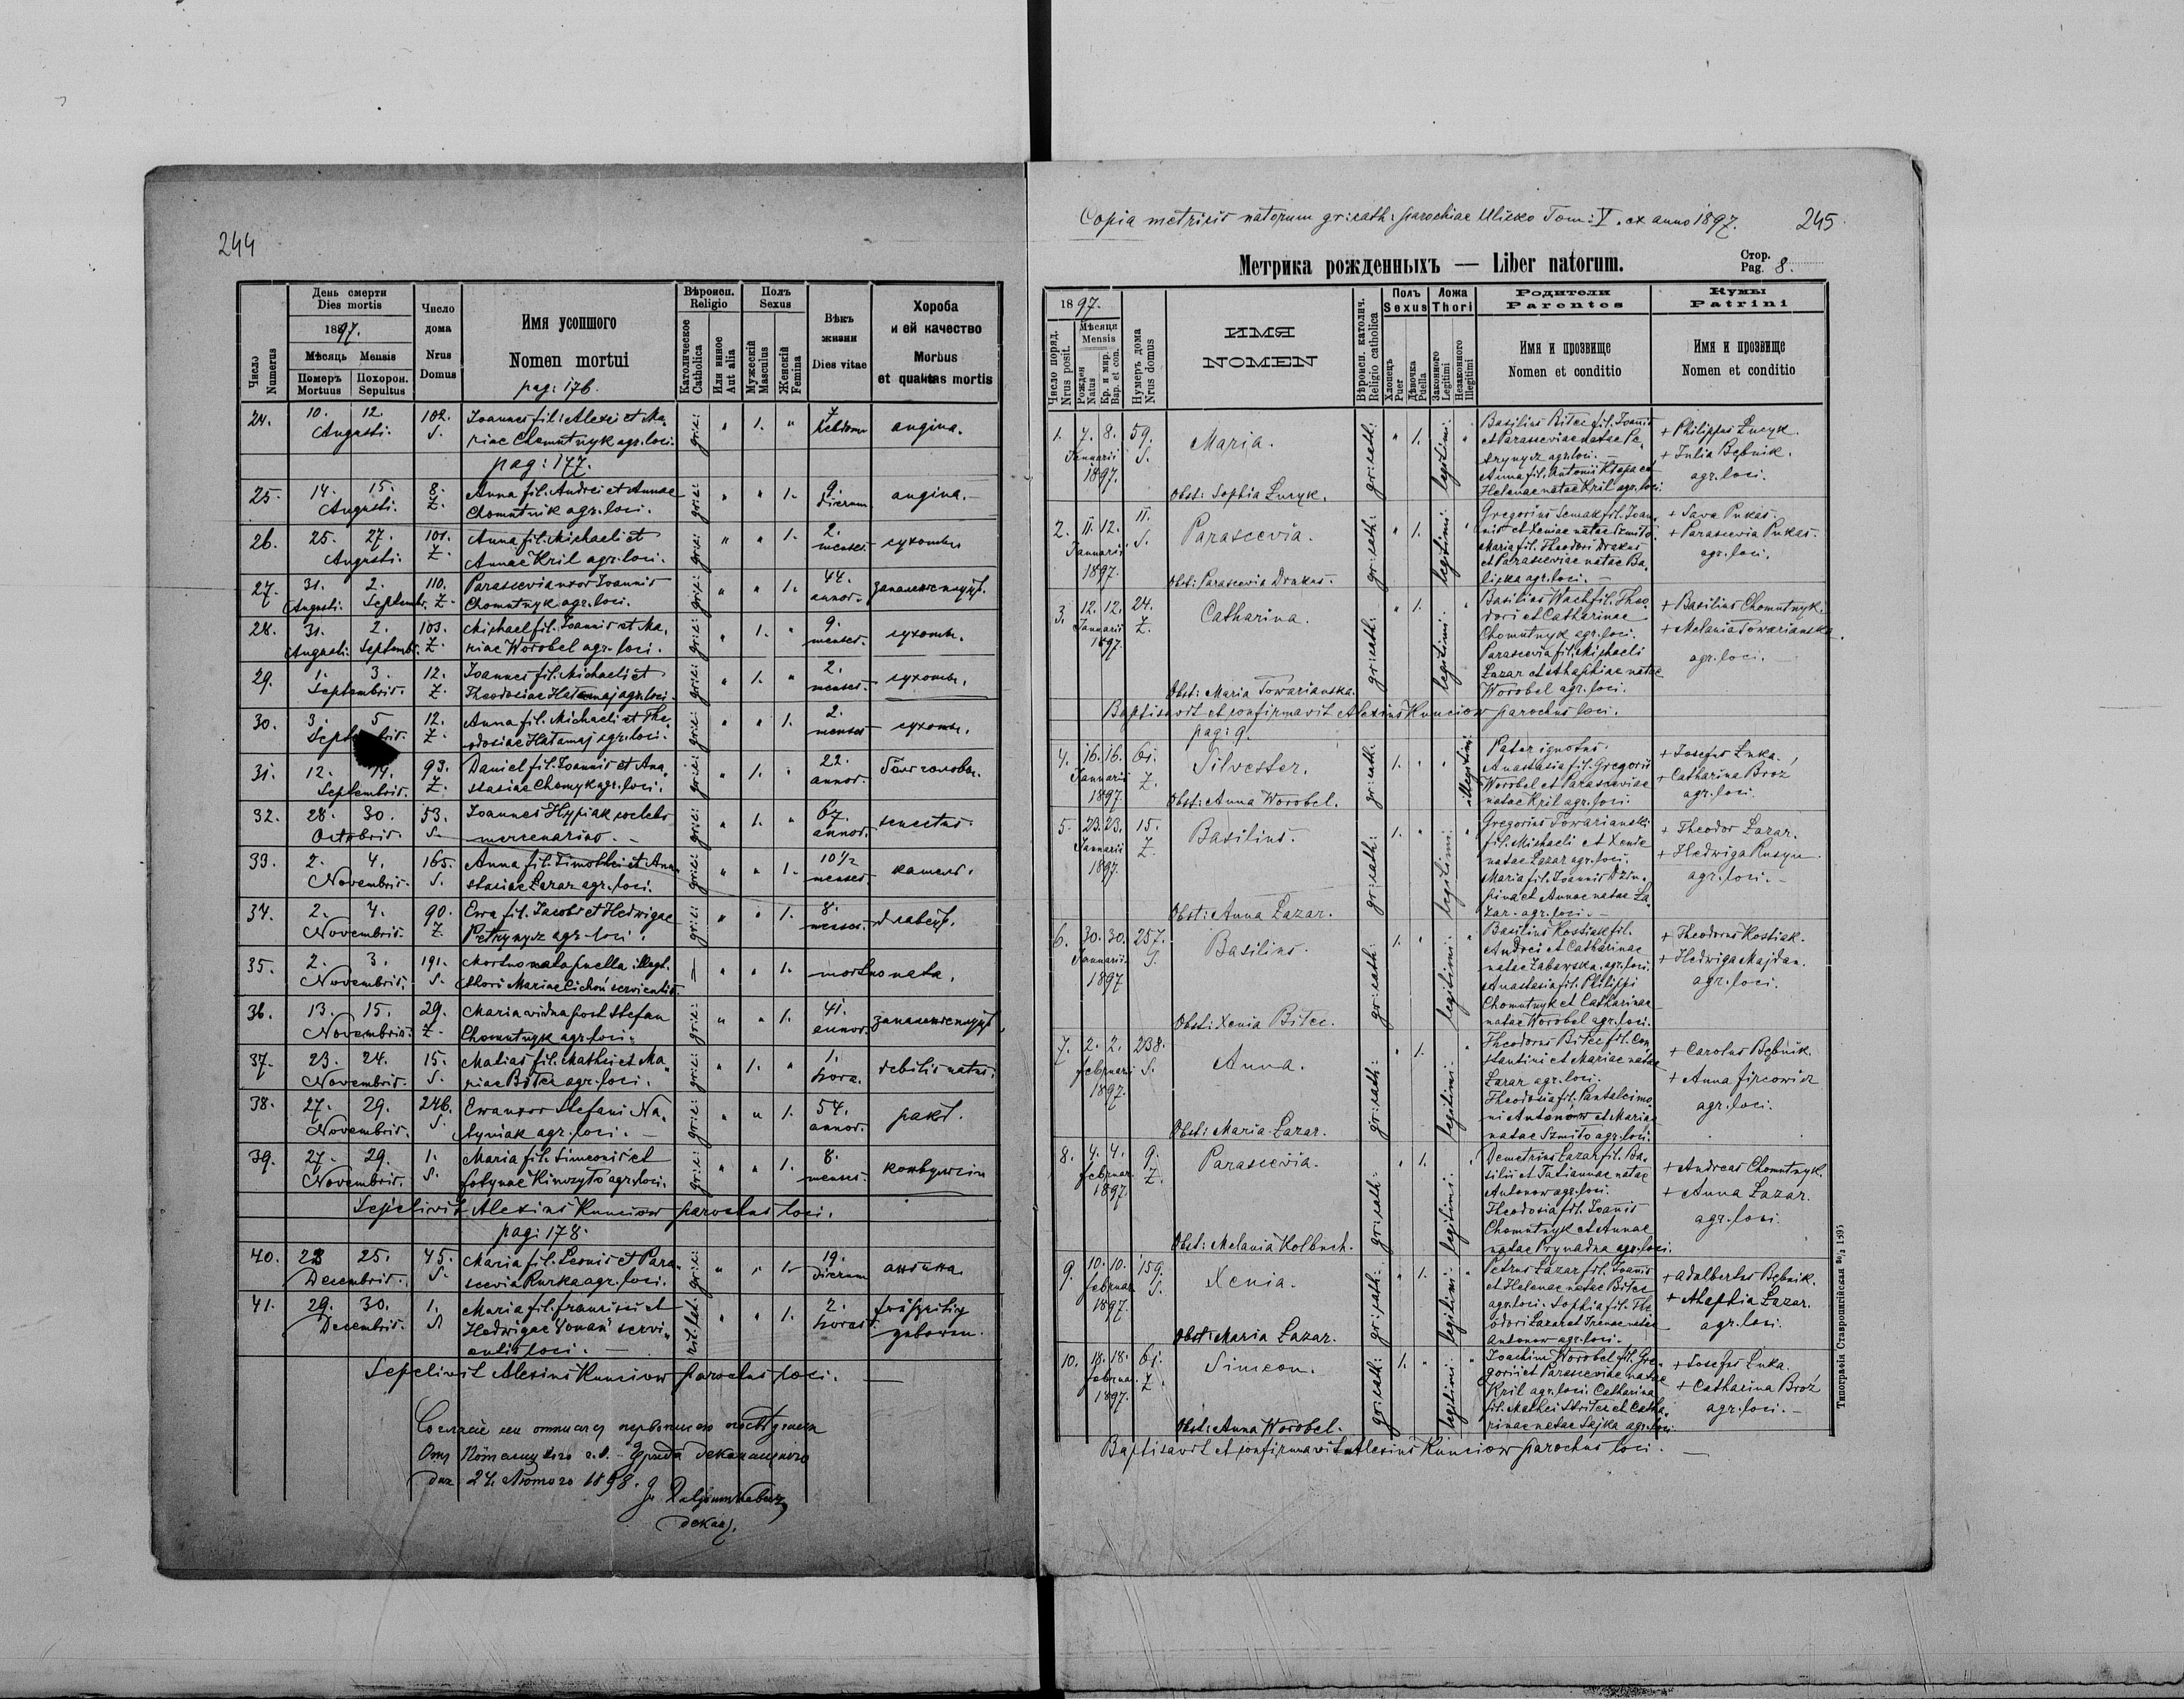 244
День смерти
Dies mortis
1897.
Мѣсяць Mensis
Число
Numerus
Померъ
Mortuus
Похорон.
Sepultus
Число
дома
Nrus
Domus
Имя усопшого
Nomen mortui
pag: 176.
Вѣроисп.
Religio
Католическое
Catholica
Или инное
Aut alia
Полъ
Sexus
Мужескій
Masculus
Женскій
Femina
Вѣкъ
жизни
Dies vitae
Хороба
и ей качество
Morbus
et qualitas mortis
24. 10. 12. Augusti. 102. S. Joannes fil: Alexei et Ma„ gr:c: „ 1. „ 7 hebdom angina.
riae Chomutnyk agr. loci.
pag: 177.
25. 14. 15. Augusti. 8. Z. Anna fil. Andrei et Annae gr:c: „ „ 1. 9. dierum angina.
Chomutnik agr. loci.
26. 25. 27. Augusti. 101. Z. Anna fil. Michaeli et gr:c: „ „ 1. 2. menses сухоты
Annae Kril agr. loci.
27. 31. Augusti. 2. Septembr. 110. Z. Parascevia uxor Joannis gr:c: „ „ 1. 44. annor.
Chomutnyk agr. loci.
28. 31. Augusti. 2. Septemb. 103. Z. Michael fil. Joannis et Ma„ gr:c: „ 1. „ 9. menses сухоты.
riae Worobel agr. loci.
29. 1. 3. Septembris. 12. Z. Joannes fil. Michaeli et gr:c: „ 1. „ 2. menses. сухоты.
Theodosiae Hatamaj agr. loci.
30. 3. 5 12. Z. Anna fil. Michaeli et The„ gr:c: „ „ 1. 2. menses сухоты.
odosiae Hatamaj agr. loci.
31. 12. 14. Septembris. 93. Z. Daniel fil. Joannis et Ana„ gr:c: „ 1. „ 22. annor. боль головы.
stasiae Chomyk agr. loci.
32. 28. 30. Octobris. 53. S. Joannes Hypiak coelebs gr:c: „ 1. „ 67. annor. senectus
mercenarius.
33. 2. 4. Novembris. 165. S. Anna fil. Timothei et Ana„ gr:c: „ „ 1. 10 1/2 menses. кашель.
stasiae Lazar agr. loci.
34. 2. 4. Novembris. 90. Z. Ewa fil. Jacobi et Hedwigae gr:c: „ „ 1. 8. menses.
Petrynycz agr. loci.
35. 2. 3. Novembris. 191. S. Mortuo nata puella illegt. — „ „ 1. mortuo nata.
thori Mariae Cichoń servientis
36. 13. 15. Novembris. 29. Z. Maria vidua post Stefan gr:c: „ „ 1. 41. annor.
Chomutnyk agr. loci.
37. 23. 24. Novembris. 15. S. Matias fil. Mathei et Ma„ gr:c: „ 1. „ 1. hora. debilis natus.
riae Bitec agr. loci.
38. 27. 29. Novembris. 246. S. Ewa uxor Stefani Na„ gr:c: „ „ 1. 54. annor. ракъ.
agr. loci.
39. 27. 29. Novembris. 1. S. Maria fil. Simeonis et gr:c: „ „ 1. 8. menses. конвульсіи
agr. loci.
Sepelivit Alexius Kunciow parochus loci.
pag: 178.
40. 23 25. Decembris. 45. S. Maria fil. Leonis et Para„ gr:c: „ „ 1. 19. dierum ангина.
scevia Rurka agr. loci.
41. 29. 30. Decembris. 1. Maria fil. Francisci et rit. lat: „ „ 1. 2. horas. frühzeitig
Hedwigae servi„ geboren.
entis loci.
Sepelivit Alexius Kunciow parochus loci.
дня 24. Лютого 1898.
декан.
Copia metricis natorum gr:cath: parochiae Ulicko Tom: V. ex anno 1897. 245
Метрика рожденныхъ — Liber natorum.
Стор.
Pag. 8.
1897.
Число поряд.
Nrus posit.
Мѣсяця
Mensis
Рожден
Natus
Кр. и мир.
Bap. et con.
Нумеръ дома
Nrus domus
ИМЯ
NOMEN
Вѣроисп. католич.
Religio catholica
Полъ
Sexus
Хлопецъ
Puer
Дѣвочка
Puella
Ложа
Thori
Законного
Legitimi
Незаконного
Illegitimi
Родители
Parentes
Имя и прозвище
Nomen et conditio
Кумы
Patrini
Имя и прозвище
Nomen et conditio
1. 7. 8. Januarii 1897. 59. S. Maria. gr:cath: „ 1. legitimi. „
Obst: Sophia Łucyk.
Basilius Bitec fil. Joannis
et Parasceviae natae Pe„
trynycz agr. loci. —
Anna fil. Antonii Kłapa et
Helenae natae Kril agr. loci.
+ Philippus Łucyk.
+ Julia Bębnik.
agr. loci.
2. 11. 12. Januarii 1897. 11. S. Parascevia. gr:cath: „ 1. legitimi. „
Obst: Parascevia Drakus.
Gregorius Semak fil. Joan„
nis et Xeniae natae Szmiło.
Maria fil. Theodori Drakus
et Parasceviae natae Ba„
licka agr. loci. —
+ Sava Pukas.
+ Parascevia Pukas.
agr. loci.
3. 12. 12. Januarii 1897. 24. Z. Catharina. gr:cath: „ 1. legitimi. „
Obst: Maria Towarianska.
Basilius Wach fil. Theo„
dori et Catharinae
Chomutnyk agr. loci.
Parascevia fil. Michaeli
Lazar et Ahaphiae natae
Worobel agr. loci.
+ Basilius Chomutnyk.
+ Melania Towarianska.
agr. loci. —
Baptisavit et confirmavit Alexius Kunciow parochus loci.
pag: 9.
4. 16. 16. Januarii 1897. 61. Z. Silvester. gr:cath. 1. „ „ illegitimi.
Obst: Anna Worobel.
Pater ignotus.
Anastasia fil. Gregorii
Worobel et Parasceviae
natae Kril agr. loci.
+ Josefus Łuka.
+ Catharina Broz
agr. loci.
5. 23. 23. Januarii 1897. 15. Z. Basilius. gr:cath: 1. „ legitimi. „
Obst: Anna Lazar.
Gregorius Towarianski
fil. Michaeli et Xenie
natae Lazar agr. loci.
Maria fil. Joannis Dziu„
pina et Annae natae La„
zar. agr. loci. —
+ Theodor Lazar.
+ Hedwiga Rusyn.
agr. loci. —
6. 30. 30. Januarii. 1897 257. S. Basilius. gr:cath: 1. „ legitimi. „
Obst: Xenia Bitec.
Basilius Kostiak fil.
Andrei et Catharinae
natae Zabawska. agr. loci.
Anastasia fil. Philippi
Chomutnyk et Catharinae
natae Worobel agr. loci.
+ Theodorus Kostiak.
+ Hedwiga Majdan.
agr. loci.
7. 2. 2. Februarii 1897. 238. S. Anna. gr:cath: „ 1. legitimi. „
Obst: Maria Lazar.
Theodorus Bitec fil. Con„
stantini et Mariae natae
Lazar agr. loci.
Theodosia fil. Pantaleimo
ni Antonow et Mariae
natae Szmiło agr. loci.
+ Carolus Bębnik.
+ Anna
agr. loci.
8. 4. 4. Februar. 1897. 9. Z. Parascevia. gr:cath: „ 1. legitimi. „
Obst: Melania Kolbuch.
Demetrius Lazar fil. Ba„
silii et Tatiannae natae
Antonow agr. loci.
Theodosia fil. Joannis
Chomutnyk et Annae
natae Prynadna agr. loci.
+ Andreas Chomutnyk.
+ Anna Lazar.
agr. loci.
9. 10. 10. Februar 1897. 159. S. Xenia. gr:cath: „ 1. legitimi: „
Obst: Maria Lazar.
Petrus Lazar fil. Joannis
et Helenae natae Bitec
agr. loci. Sophia fil. The„
odori Lazar et Irenae natae
Antonow agr. loci.
+ Adalbertus Bębnik.
+ Ahaphia Lazar.
agr. loci.
10. 18. 18. Februar. 1897. 61. Z. Simeon. gr:cath: 1. „ legitimi: „
Obst: Anna Worobel.
Joachim Worobel fil. Gre„
gorii et Parasceviae natae
Kril agr. loci. Catharina
fil. Mathei et Catha„
rinae natae Sajka agr. loci.
+ Josefus Łuka.
+ Catharina Broż
agr. loci. —
Baptisavit et confirmavit Alexius Kunciow parochus loci. —
Типографія Ставропигійская 1895